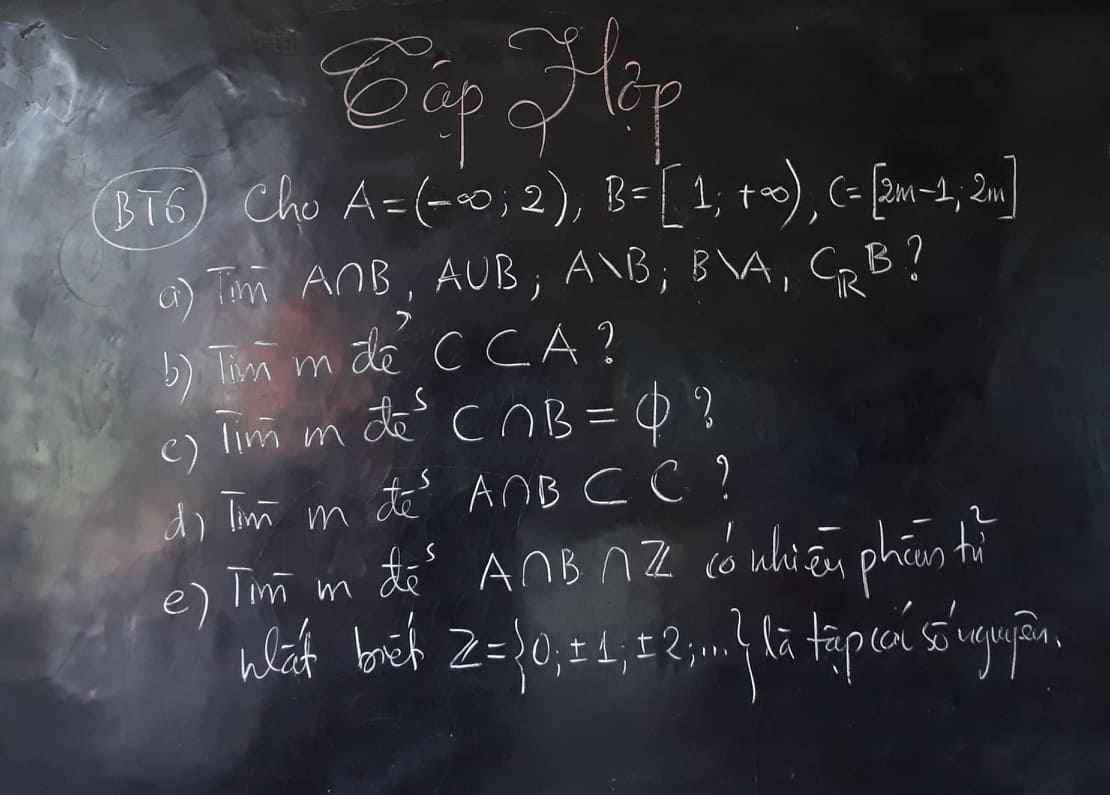 Tập Hợp
BT6 Cho A=(-∞; 2), B=[1; +∞), C=[2m-1; 2m]
a) Tìm A∩B, A∪B; A\B; B\A, CℝB?
b) Tìm m để C⊂A?
c) Tìm m để C∩B=ϕ?
d) Tìm m để A∩B⊂C?
e) Tìm m để A∩B∩ℤ có nhiều phần tử
nhất biết ℤ={0; ±1; ±2; ...} là tập các số nguyên.